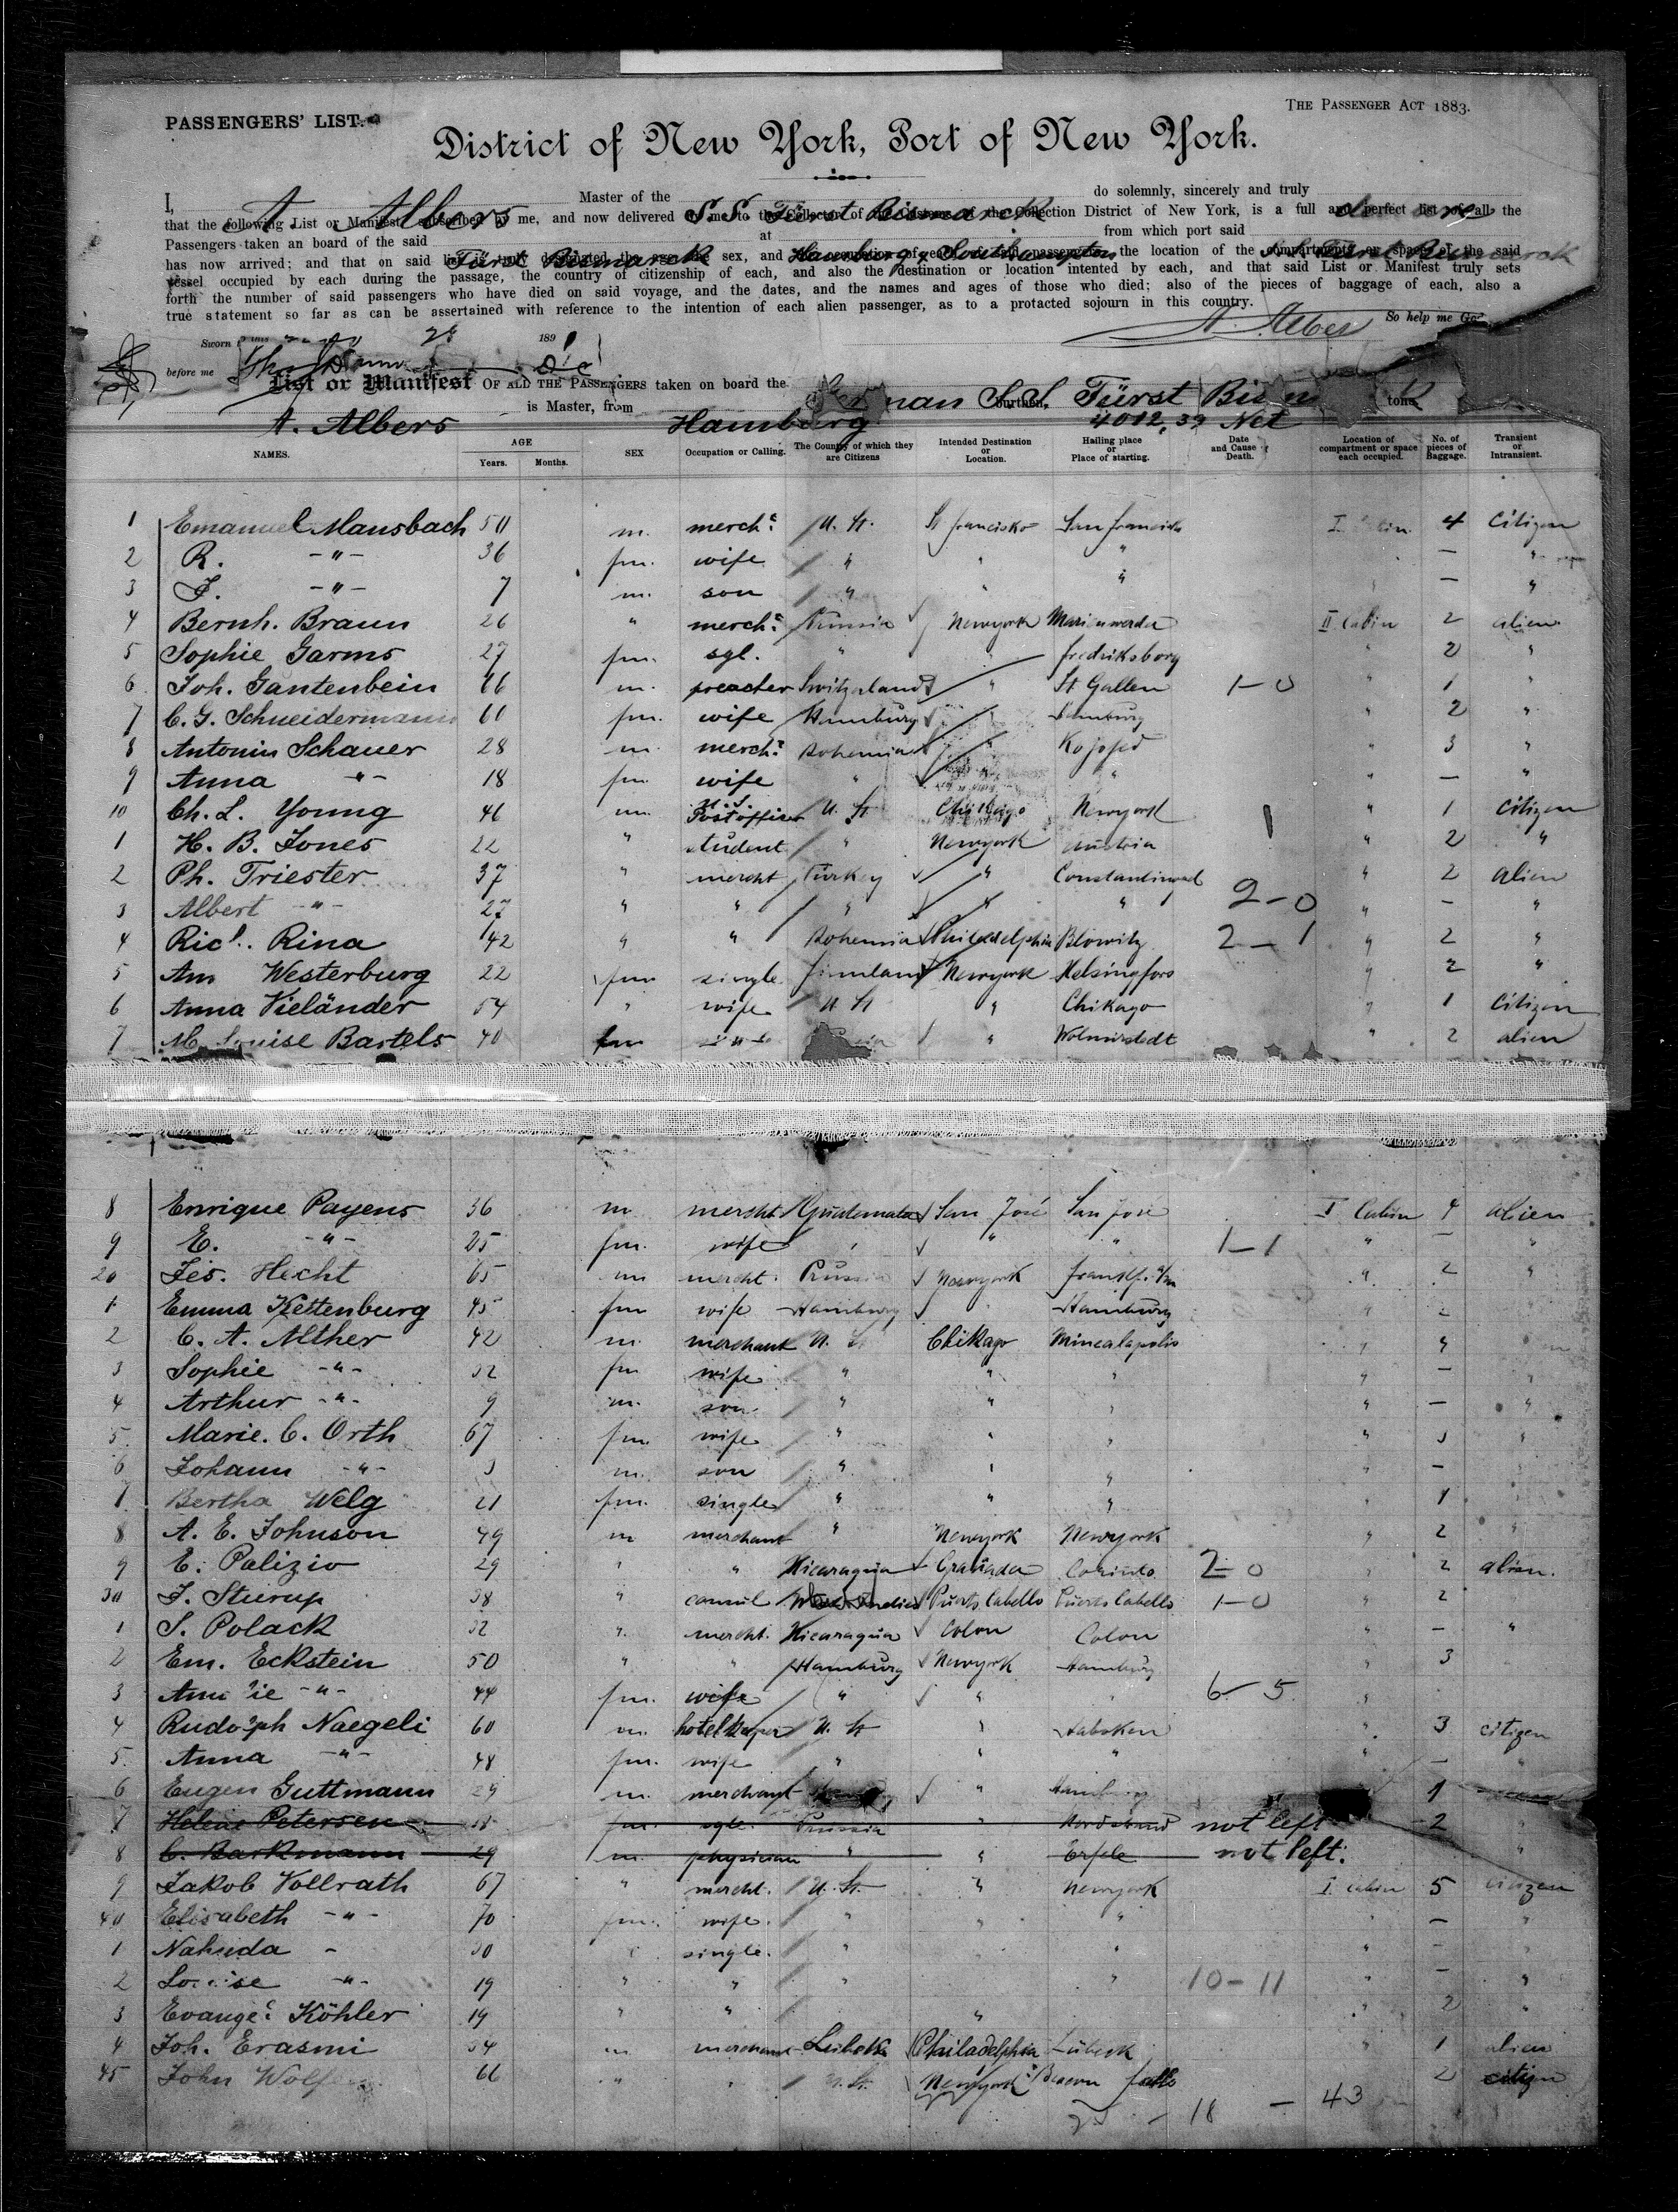 PASSENGERS' LIST.
THE PASSENGER ACT 1883.
District of New York, Port of New York.
I, A. Albers Master of the S.S. Fürst Bismarck do solemnly, sincerely and truly
that the following List or Manifest subscribed by me, and now delivered by me to the Collector of the Customs of the Collection District of New York, is a full and perfect list of all the
Passengers taken an board of the said Fürst Bismarck at Hamburg & Southampton from which port said
has now arrived; and that on said list is truly designated the age, the sex, and the occupation of each of said passengers, the location of the compartment or space of the said
vessel occupied by each during the passage, the country of citizenship of each, and also the destination or location intented by each, and that said List or Manifest truly sets
forth the number of said passengers who have died on said voyage, and the dates, and the names and ages of those who died; also of the pieces of baggage of each, also a
true statement so far as can be assertained with reference to the intention of each alien passenger, as to a protacted sojourn in this country.
So help me God
A. Albers
Sworn 189
before me
List or Manifest OF ALL THE PASSENGERS taken on board the German S.S. Fürst Bismarck
A. Albers is Master, from Hamburg burthen, 4012,39 Net tons
NAMES. AGE Years. Months. SEX Occupation or Calling. The Country of which they are Citizens Intended Destination or Location. Hailing place or Place of starting. Date and Cause Death. Location of compartment or space each occupied. No. of pieces of Baggage. Transient or Intransient.
1 Emanuel Mansbach 50 m. mercht U. St. St francisko San francisko I Cabin 4 Citizen
2 R. -"- 36 fm. wife " " " — "
3 J. -"- 7 m. son " " " — "
4 Bernh. Braun 26 " mercht Prussia Newyork Marienwerder II Cabin 2 alien
5 Sophie Garms 27 fm. sgl. " " fredriksborg " 2 "
6 Joh. Gantenbein 66 m. preacher Switzerland " St Gallen 1-0 " 1 "
7 C. G. Schneidermann 60 fm. wife Hamburg " Hamburg " 2 "
8 Antonin Schauer 28 m. mercht Bohemia " " 3 "
9 Anna -"- 18 fm. wife " " " " — "
10 Ch. L. Young 46 m. U.S. Postofficer U. St Chikago Newyork " 1 Citizen
1 H. B. Jones 22 " student " Newyork Austria " 2 "
2 Ph. Triester 37 " mercht Turkey " " 2 alien
3 Albert -"- 27 " " " " " 2-0 " - "
4 Rich. Rina 42 " " Bohemia Philadelphia Blowitz 2-1 " 2 "
5 Am Westerburg 22 fm single Finnland Newyork Helsingfors " 2 "
6 Anna Vieländer 54 " wife U St " Chikago " 1 Citizen
7 M. Louise Bartels 40 fm " Wolmirstedt " 2 alien
8 Enrique Payens 36 m mercht Guatemala San José San José I Cabin 4 alien
9 E. -"- 25 fm. wife " " " 1-1 " — "
20 Jes. Hecht 65 m mercht. Prussia Newyork frankf. a/m " 2 "
1 Emma Kettenburg 45 fm wife Hamburg " Hamburg " 2 "
2 C. A. Alther 42 m. merchant U. St Chikago Minealapolis " 4
3 Sophie -"- 32 fm wife " " " " —
4 Arthur -"- 9 m. son " " " " — "
5 Marie. C. Orth 67 fm wife " " " " 3 "
6 Johann -"- 3 m. son " " " " -
7 Bertha Welg 21 fm. single " " " 1
8 A. E. Johnson 49 m merchant " Newyork Newyork " 2 "
9 E. Palizio 29 " " Nicaragua Granada Corinto 2-0 " 2 alien.
30 J. Stürup 38 " consul Puerto Cabello Puerto Cabello 1-0 " 2
1 S. Polack 32 " mercht. Nicaragua Colon Colon " - "
2 Em. Eckstein 50 " " Hamburg Newyork Hamburg " 3
3 -"- 44 fm. wife " " " 6-5 "
4 Rudolph Naegeli 60 m. hotelkeeper U. St " Hoboken " 3 citizen
5 Anna -"- 48 fm. wife " " " — "
6 Eugen Guttmann 29 m. merchant " Hamburg 1
7 Helene Petersen 18 fm. sgle. Prussia " Nordstrand not left 2 "
8 C. Barkmann 29 m. physician " " not left. "
9 Jakob Vollrath 67 " mercht. U. St. " Newyork I. Cabin 5 Citizen
40 Elisabeth -"- 70 fm. wife. " " " " — "
1 Nahuda - 30 single. " " " - "
2 Louise -"- 19 " " " " 10-11 " - "
3 Köhler 19 " " " " 2 "
4 Joh. Erasmi 54 m merchant Lübeck Philadelphia Lübeck " 1 alien
45 John 66 " " U. St. Newyork Beaver falls 2 citizen
18 — 43